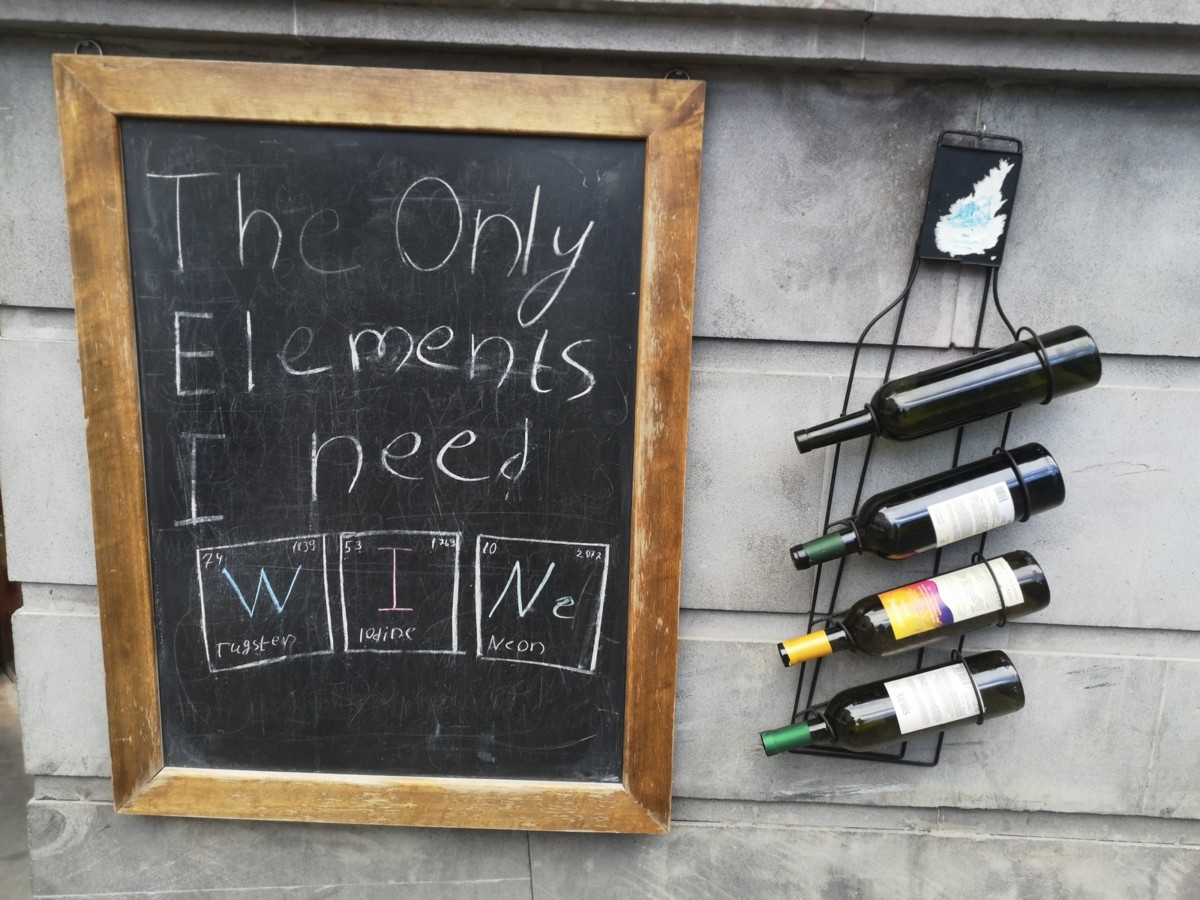 The Only
Elements
I need
74 1839 53 1763 10 2072
W I Ne
Tugsten Iodine Neon